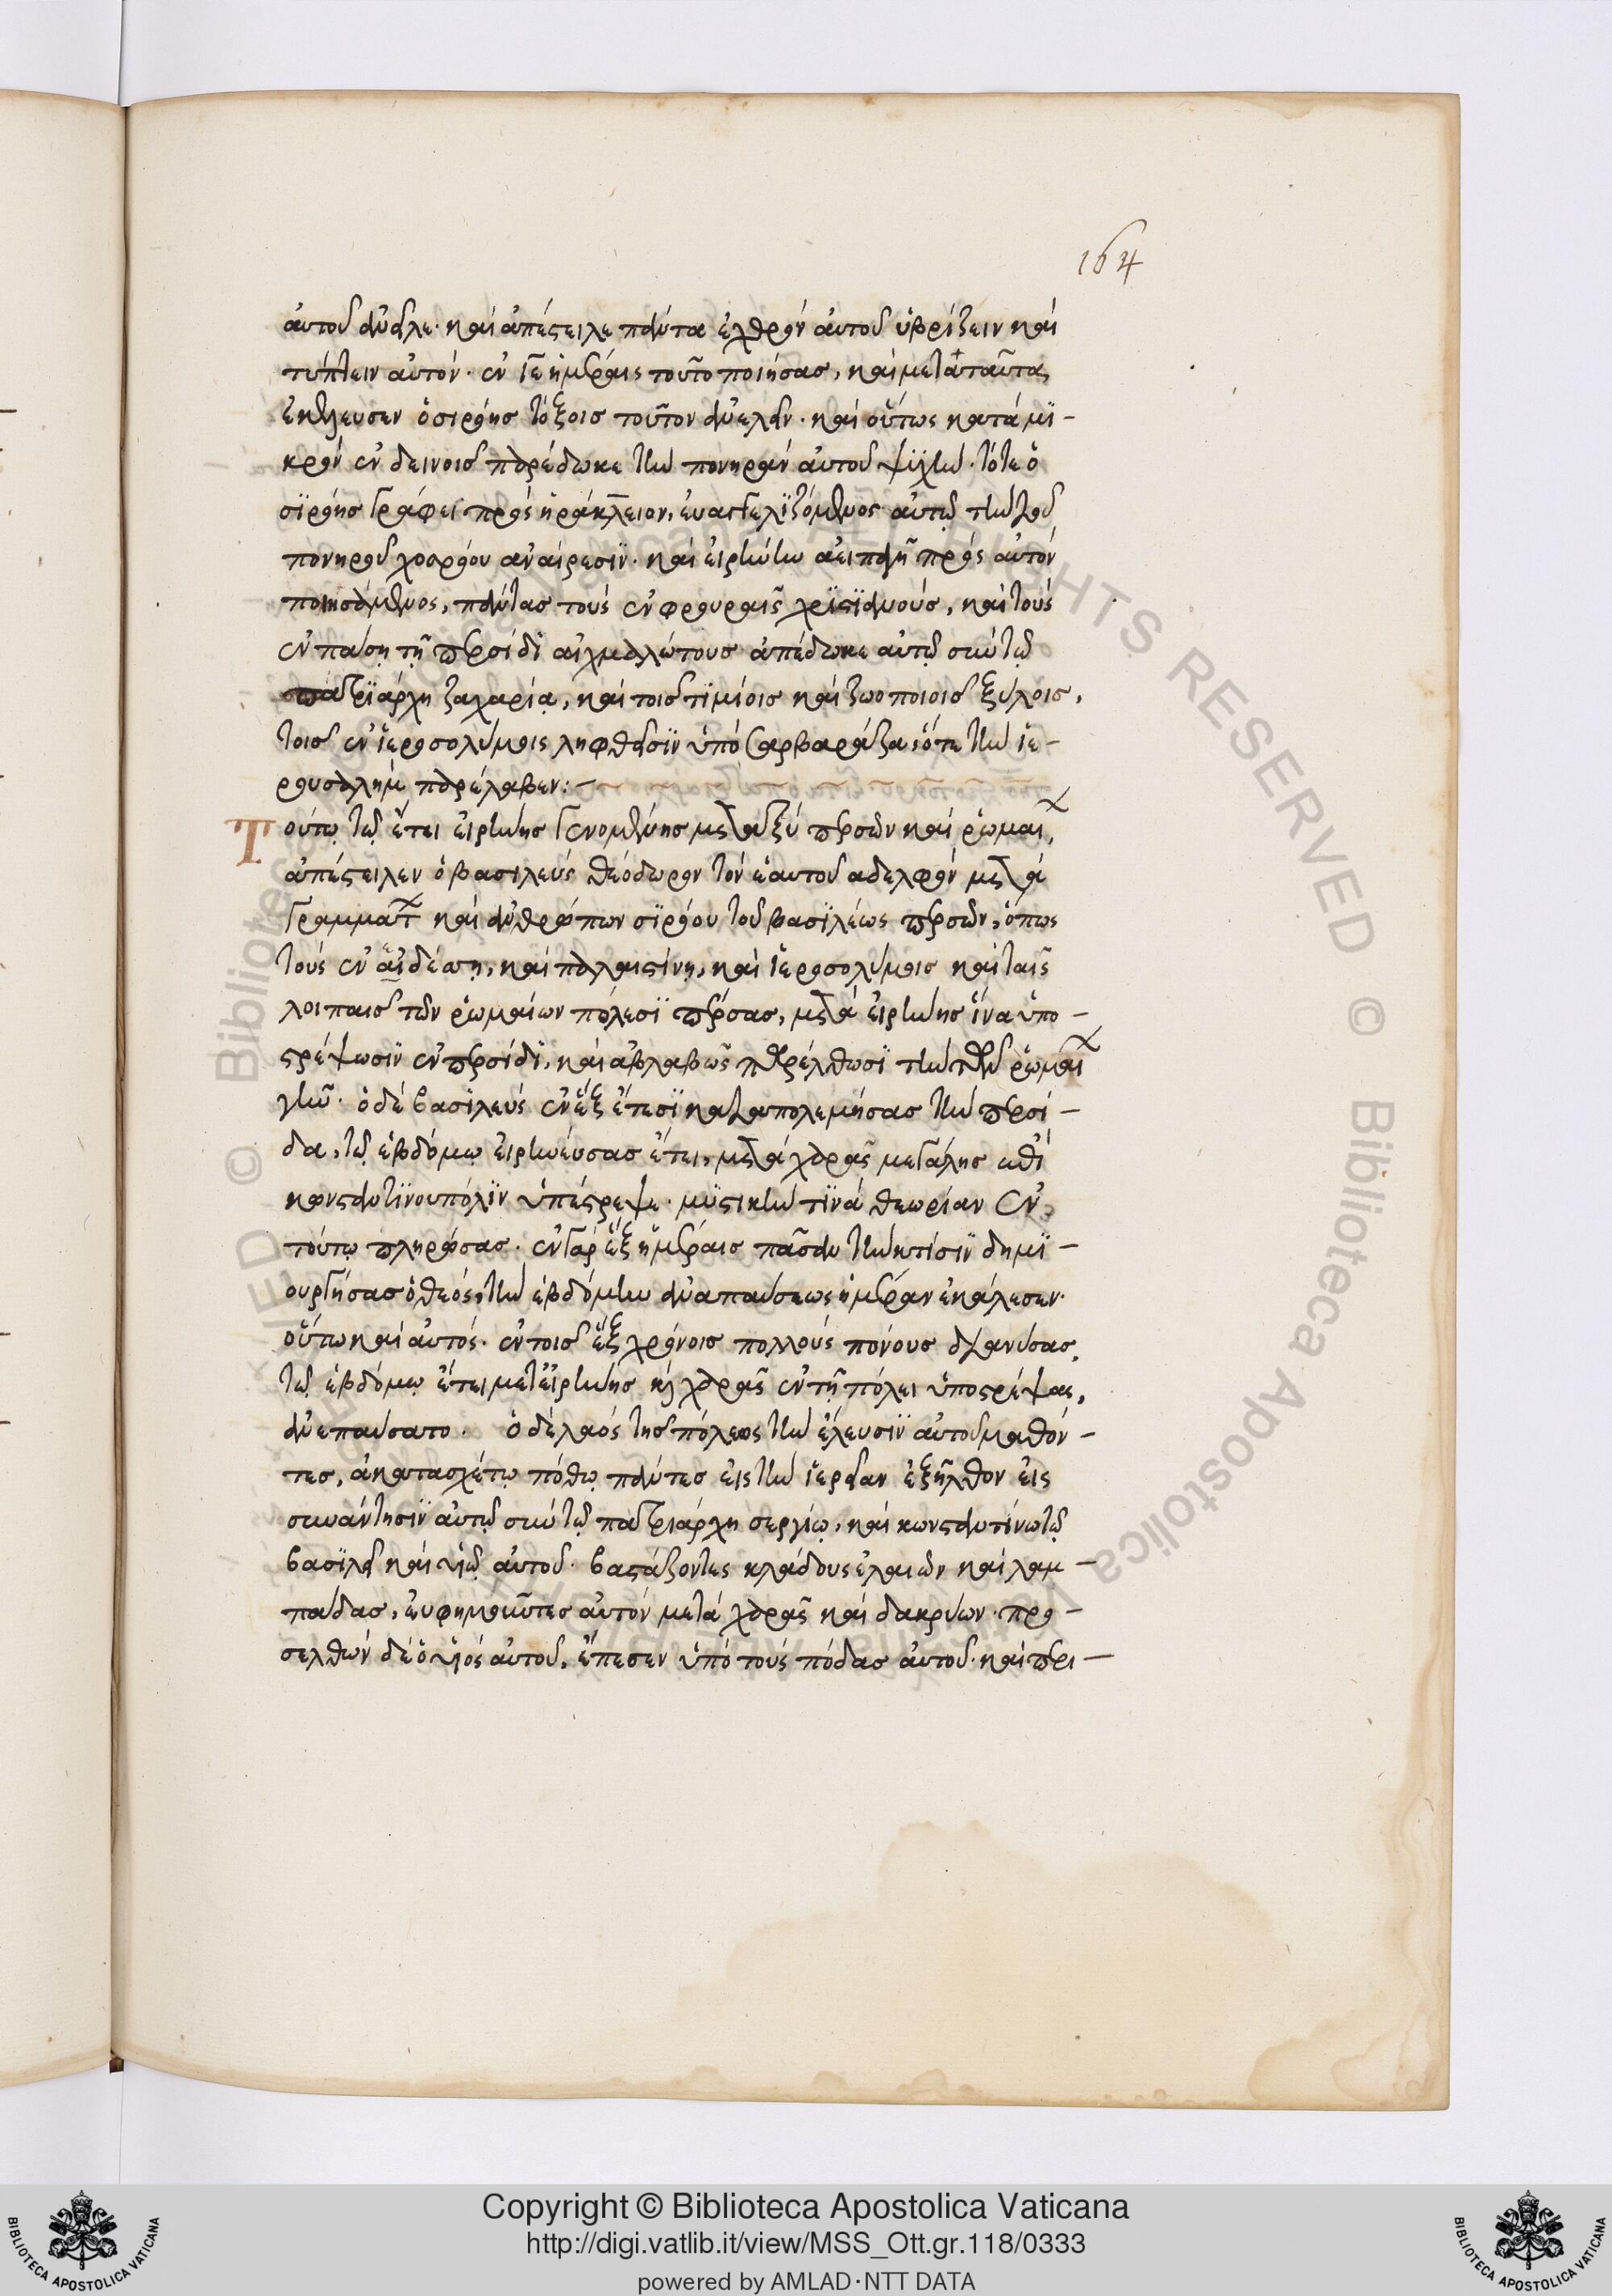 164
αὐτοῦ ἀνεῖλε· καὶ ἀπέστειλε πάντα ἐχθρὸν αὐτοῦ ὑβρίζειν καὶ
τύπτειν αὐτόν· ἐν ιε ἡμέραις τοῦτο ποιήσας, καὶ μετὰ ταῦτα
ἐκέλευσεν ὁ σιρόης τόξοις τοῦτον ἀνελεῖν· καὶ οὕτως κατὰ μϊ-
κρὸν ἐν δεινοῖς παρέδωκε τὴν πονηρὰν αὐτοῦ ψϋχήν· τότε ὁ
σϊρόης γράφει πρὸς ἡράκλειον, εὐαγγελϊζόμενος αὐτῷ τὴν τοῦ
πονηροῦ χοσρόου ἀναίρεσϊν· καὶ εἰρήνην ἀειπαγῆ πρὸς αὐτὸν
ποιησάμενος, πάντας τοὺς ἐν φρουραῖς χρϊστϊανούς, καὶ τοὺς
ἐν πάσῃ τῇ περσίδι αἰχμαλώτους ἀπέδωκε αὐτῷ σὺν τῷ
πατρϊάρχη ζαχαρίᾳ, καὶ τοῖς τϊμίοις καὶ ζωοποιοῖς ξύλοις,
τοῖς ἐν ἱεροσολύμοις ληφθεῖσϊν ὑπὸ σαρβαράζα, ὅτε τὴν ἱε-
ρουσαλὴμ παρέλαβεν:-
Τούτῳ τῷ ἔτει εἰρήνης γενομένης μεταξὺ περσῶν καὶ ῥωμαί,
ἀπέστειλεν ὁ βασιλεὺς θεόδωρον τὸν ἑαυτοῦ ἀδελφὸν μετὰ
γραμμάτ καὶ ἀνθρώπων σϊρόου τοῦ βασϊλέως περσῶν, ὅπως
τοὺς ἐν αἰδέσῃ, καὶ παλαιστίνῃ, καὶ ἱεροσολύμοις καὶ ταῖς
λοιπαῖς τῶν ῥωμαίων πόλεσϊ πέρσας, μετὰ εἰρήνης ἵνα ὑπο-
στρέψωσϊν ἐν περσίδϊ, καὶ ἀβλαβῶς παρέλθωσϊ τὴν τῶν ῥωμαί
γῆν· ὁ δὲ βασιλεὺς ἐν ἓξ ἔτεσϊ καταπολεμήσας τὴν περσί-
δα, τῷ ἑβδόμῳ εἰρηνεύσας ἔτει, μετὰ χαρᾶς μεγάλης ἐπὶ
κωνσταντϊνουπόλϊν ὑπέστρεψε· μϋστικήν τϊνα θεωρίαν ἐν
τούτῳ πληρώσας· ἐν γὰρ ἓξ ἡμέραις πᾶσαν τὴν κτίσϊν δημϊ-
ουργήσας ὁ θεός, τὴν ἑβδόμην ἀναπαύσεως ἡμέραν ἐκάλεσεν·
οὕτω καὶ αὐτός· ἐν τοῖς ἓξ χρόνοις πολλοὺς πόνους διανύσας,
τῷ ἑβδόμῳ ἔτει μετ εἰρήνης καὶ χαρᾶς ἐν τῇ πόλει ὑποστρέψας,
ἀνεπαύσατο· ὁ δὲ λαὸς τῆς πόλεως τὴν ἔλευσϊν αὐτοῦ μαθόν-
τες, ἀκατασχέτῳ πόθῳ πάντες εἰς τὴν ἱερείαν ἐξῆλθον εἰς
συνάντησϊν αὐτῷ σὺν τῷ πατριάρχη σεργίῳ, καὶ κωνσταντίνω τῷ
βασϊλεῖ καὶ υἱῷ αὐτοῦ· βαστάζοντες κλάδους ἐλαιῶν καὶ λαμ-
πάδας, εὐφημοῦντες αὐτὸν μετὰ χαρᾶς καὶ δακρύων· προ-
σελθὼν δὲ ὁ υἱὸς αὐτοῦ, ἔπεσεν ὑπὸ τοὺς πόδας αὐτοῦ· καὶ περι-
Copyright © Biblioteca Apostolica Vaticana
http://digi.vatlib.it/view/MSS_Ott.gr.118/0333
powered by AMLAD·NTT DATA